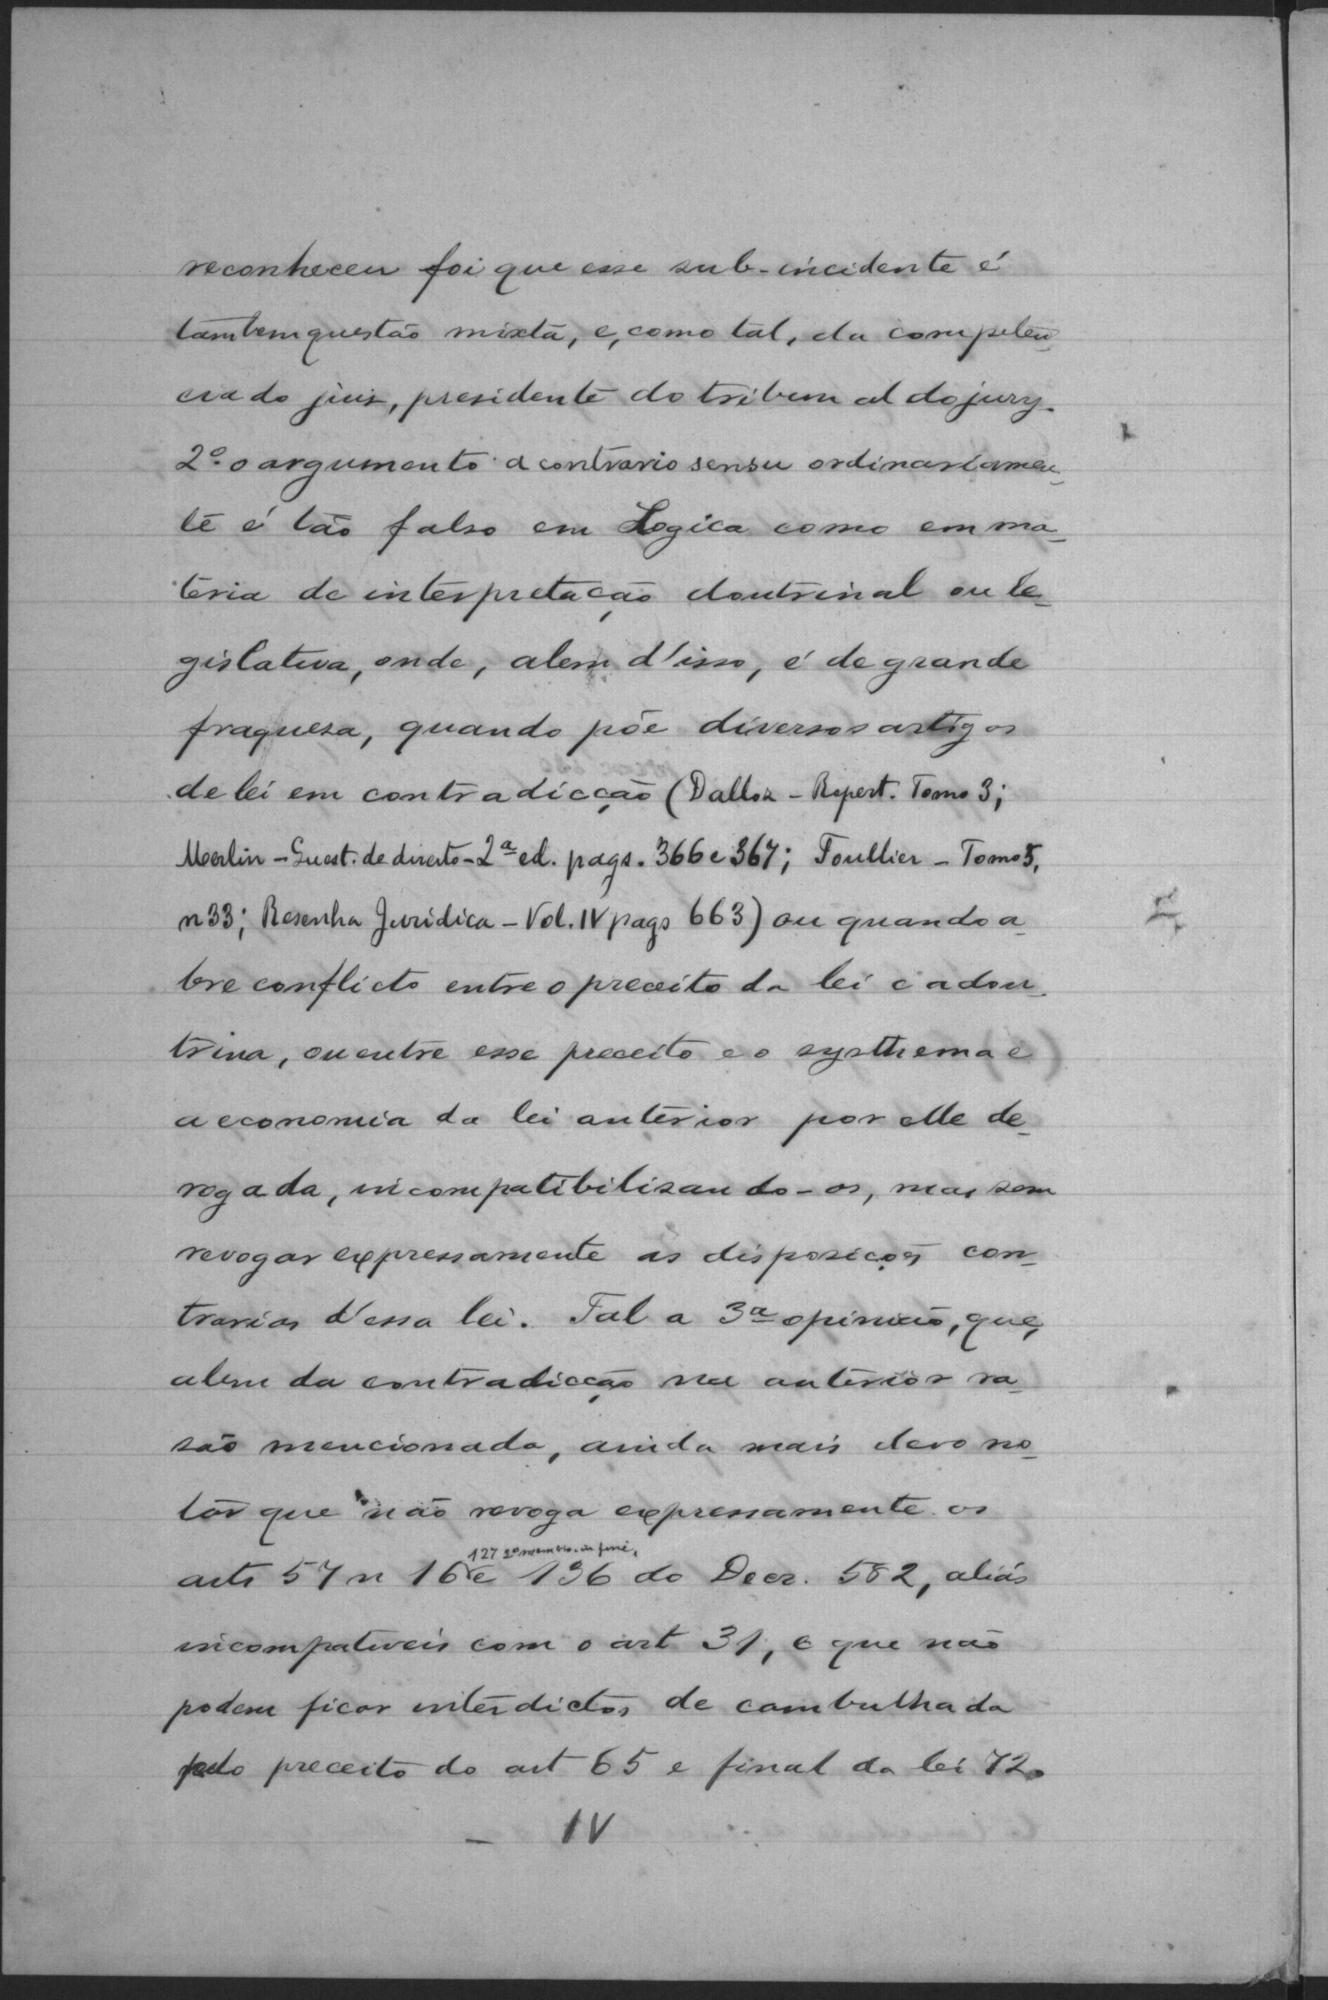 reconheceu foi que esse sub-incidente é
tambem questão mixta, e, como tal, da competen-
cia do juis, presidente do tribunal do jury.
2º o argumento a contrario sensu ordinariamen-
te é tão falso em Logica como em ma-
teria de interpretação doutrinal ou le-
gislativa, onde, alem d'isso, é de grande
fraquesa, quando põe diversos artigos
de lei em contradicção (Dalloz - Repert. Tomo 3;
Merlin - Quest. de direito - 2ª ed. pags. 366 e 367; Toullier - Tomo 5,
n 33; Resenha Juridica - Vol. IV pags 663) ou quando a-
bre conflicto entre o preceito da lei e a dou-
trina, ou entre esse preceito e o systhema e
a economia da lei anterior por elle de-
rogada, incompatibilisando-os, mas sem
revogar expressamente as disposições con-
trarias d'essa lei. Tal a 3ª opinião, que,
alem da contradicção na anterior ra-
são mencionada, ainda mais devo no-
tar que não revoga expressamente os
127 2º membro. in fine,
arts 57 n 16 e 136 do Decr. 582, aliás
incompativeis com o art 31, e que não
podem ficar interdictos de cambulhada
pelo preceito do art 65 e final da lei 72.
- IV